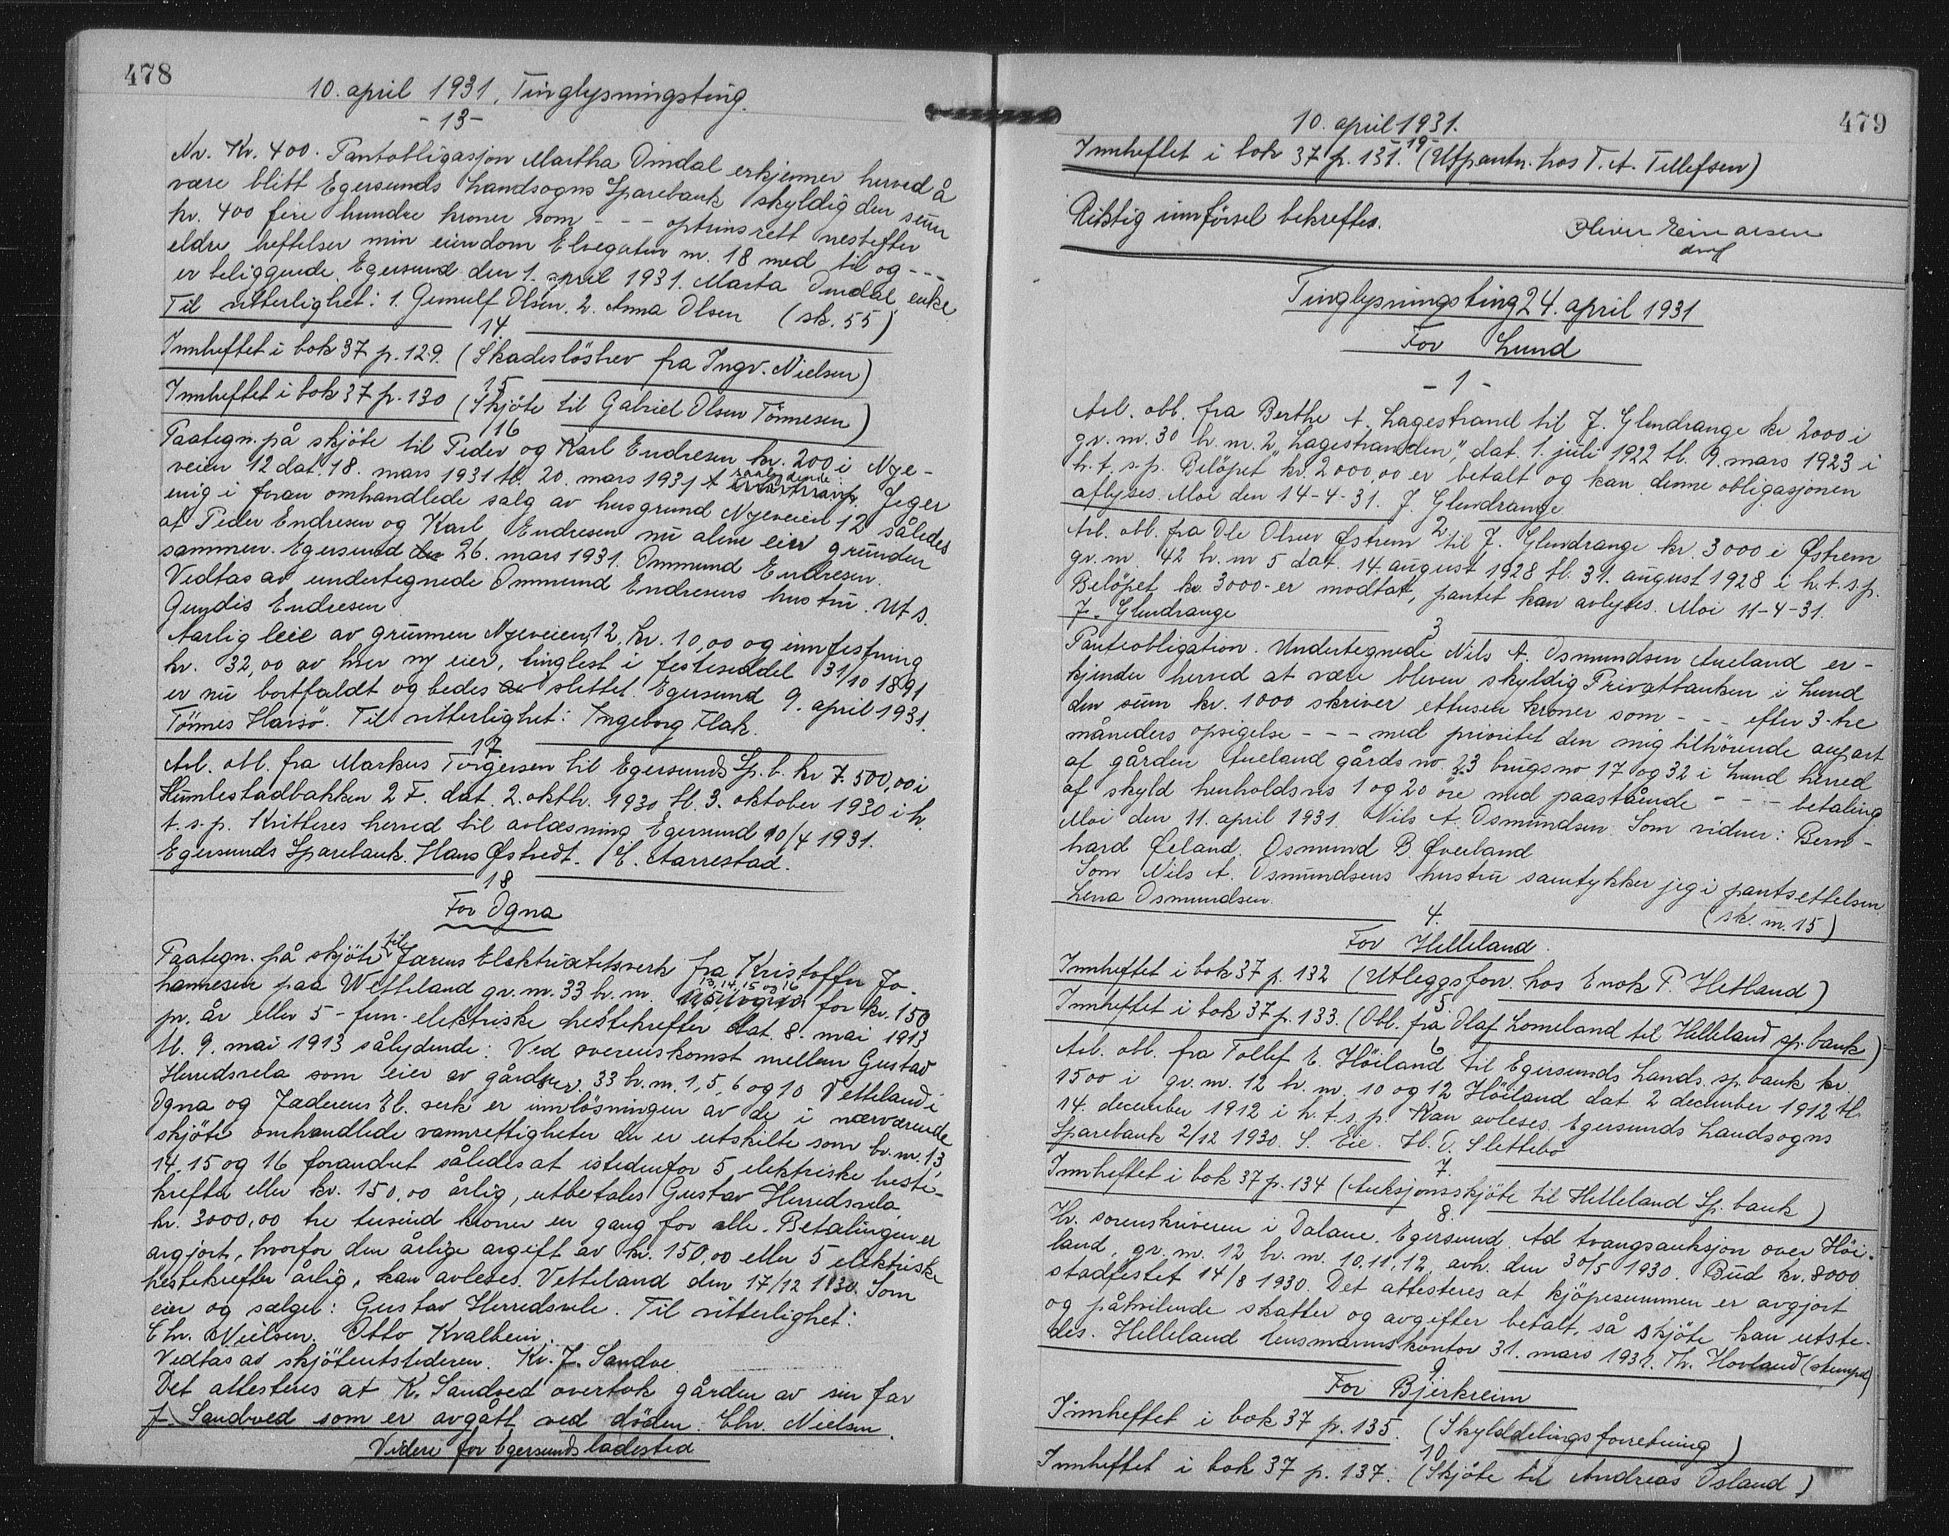 478
10. april 1931, Tinglysningsting.
-13-
Nr. Kr. 400. Pantobligasjon Martha Omdal erkjenner herved å
være blitt Egersunds Landsogns Sparebank skyldig den sum
kr. 400 fire hundre kroner som - - - optrinsrett nestefter
eldre heftelser min eiendom Elvegaten nr. 18 med til og - - -
er beliggende Egersund den 1. april 1931. Marta Omdal, enke
Til vitterlighet: 1. Gunulf Olsen. 2. Anna Olsen (sk. 55)
14.
Innheftet i bok 37 p. 129. (Skadeslösbrev fra Ingv. Nielsen)
15
Innheftet i bok 37 p. 130 (Skjöte til Gabriel Olsen Tönnesen)
16
Paategn. på skjöte til Peder og Karl Endresen kr. 200 i Nye-
veien 12 dat. 18. mars 1931 tl. 20. mars 1931 Jeg er
enig i foran omhandlede salg av husgrund Nyeveien 12 således
at Peder Endresen og Karl Endresen nu alene eier grunden
sammen. Egersund den 26. mars 1931. Ommund Endresen.
Vedtas av undertegnede Ommund Endresens hustru. Ut s.
Gundis Endresen
Aarlig leie av grunnen Nyeveien 12. kr. 10,00 og innfestning
kr. 32,00 av hver ny eier, tinglest i festeseddel 31/10 1891
er nu bortfaldt og bedes slettet. Egersund 9. april 1931.
Tönnes Havsö. Til vitterlighet: Ingeborg Flak.
17
Avl. obl. fra Markus Torgersen til Egersunds Sp.b. kr 7.500,00 i
Humlestadbakken 2 F. dat. 2. oktbr. 1930 tl. 3. oktober 1930 i h.
t. s. p. Kvitteres herved til avlæsning Egersund 10/4 1931.
Egersunds Sparebank. Hans Østvedt. / E. Aarrestad.
18
For Ogna
Paategn. på skjöte til Jærens Elektricitetsverk fra Kristoffer Jo-
hannesen paa Wetteland gr. nr. 33 br. nr. 13, 14, 15 og 16 for kr. 150
pr. år eller 5 - fem - elektriske hestekrefter dat. 8. mai 1913
tl. 9. mai 1913 sålydende: Ved overenskomst mellem Gustav
Herredsvela som eier av gårdsnr. 33 br. nr. 1, 5, 6 og 10 Vetteland i
Ogna og Jæderens El. verk er innlösningen av de i nærværende
skjöte omhandlede vannrettigheter der er utskilte som br. nr. 13,
14, 15 og 16 forandret således at istedenfor 5 elektriske heste-
krefter eller kr. 150,00 årlig, utbetales Gustav Herredsvela
kr. 3000,00 tre tusend kroner en gang for alle. Betalingen er
avgjort, hvorfor den årlige avgift av kr. 150,00 eller 5 elektriske
hestekrefter årlig, kan avleses. Vetteland den 17/12 1930. Som
eier og sælger: Gustav Herredsvele. Til vitterlighet:
Chr. Nielsen. Otto Kvalheim.
Vedtas av skjöteutstederen. Kr. J. Sandve.
Det attesteres at K. Sandved overtok gården av sin far
J. Sandved som er avgått ved döden. Chr. Nielsen.
Videre for Egersunds ladested
479
10. april 1931.
19-
Innheftet i bok 37 p. 131. (Utpantn. hos T. A. Tellefsen)
Riktig innförsel bekreftes.
Oliver Einarsen
Tinglysningsting 24. april 1931
For Lund
- 1 -
Avl. obl. fra Berthe A. Lagestrand til J. Glendrange kr 2000 i
gr. nr. 30 br. nr. 2 "Lagestranden", dat. 1. juli 1922 tl. 9. mars 1923 i
h. t. s. p. Belöpet kr. 2000,00 er betalt og kan denne obligasjonen
aflyses. Moi den 14-4-31. J. Glendrange
2
Avl. obl. fra Ole Olsen Østrem til J. Glendrange kr. 3000 i Østrem
gr. nr. 42 br. nr 5 dat. 14. august 1928 tl. 31. august 1928 i h. t. s. p.
Belöpet kr. 3000- er modtat, pantet kan avlyses. Moi 11-4-31.
J. Glendrange
3
Panteobligation. Undertegnede Nils A. Osmundsen Aueland er-
kjender herved at være bleven skyldig Privatbanken i Lund
den sum kr. 1000 skriver ettusen kroner som - - - efter 3-tre
måneders opsigelse - - - med prioritet den mig tilhörende anpart
af gården Aueland gårds no 23 brugs no 17 og 32 i Lund herred
af skyld henholdsvis 1 og 20 öre med paastående - - - betaling.
Moi den 11. april 1931. Nils A. Osmundsen. Som vidner: Bern-
hard Øeland. Osmund B. Øverland
Som Nils A. Osmundsens hustru samtykker jeg i pantsettelsen
Lena Osmundsen. (sk. nr. 15)
4.
For Helleland.
Innheftet i bok 37 p. 132 (Utleggsforr. hos Enok P. Hetland)
5
Innheftet i bok 37 p. 133. (Obl. fra Olaf Lomeland til Helleland sp. bank)
6
Avl. obl. fra Tollef E. Höiland til Egersunds Lands. sp. bank kr.
1500 i gr. nr. 12 br. nr. 10 og 12 Höiland dat 2 december 1912 tl.
14. december 1912 i h. t. s. p. Kan avleses. Egersunds Landsogns
Sparebank 2/12 1930. S. Eie. H. O. Slettebö
7.
Innheftet i bok 37 p. 134 (Auksjonsskjöte til Helleland Sp. bank)
8.
Hr. sorenskriveren i Dalane, Egersund. Ad tvangsauksjon over Höi-
land, gr. nr. 12 br. nr. 10, 11, 12, avh. den 30/5 1930. Bud kr. 8000
stadfestet 14/8 1930. Det attesteres at kjöpesummen er avgjort
og påhvilende skatter og avgifter betalt, så skjöte kan utste-
des. Helleland lensmannskontor 31. mars 1931. Th. Hovland (stempel)
9
For Bjerkreim
Innheftet i bok 37 p. 135. (Skylddelingsforretning)
10
Innheftet i bok 37 p. 137. (Skjöte til Andreas Østand)